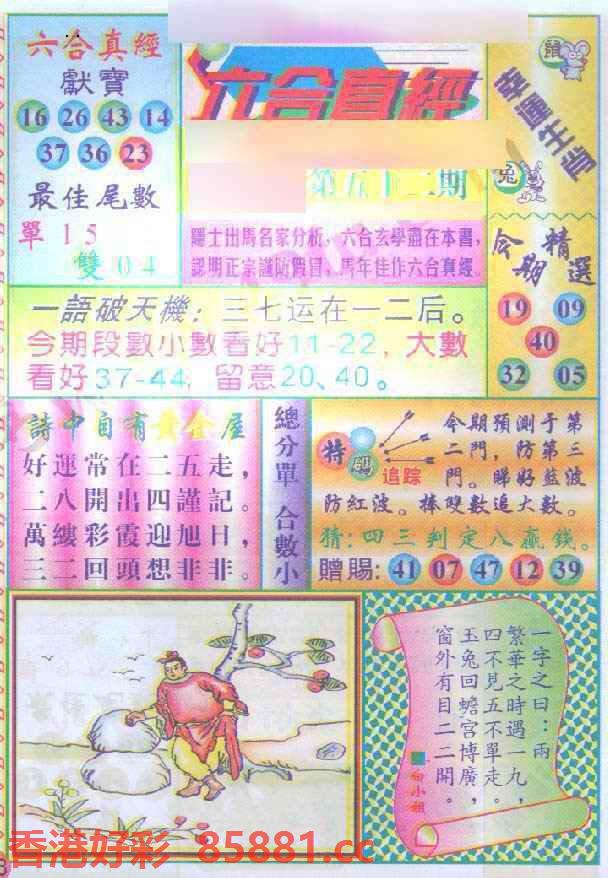 六合真經
獻寶
16 26 43 14
37 36 23
最佳尾數
單 15
雙 04
六合真經
第五十二期
隱士出馬名家分析，六合玄學盡在本書，
認明正宗謹防假冒，馬年佳作六合真經。
鼠
幸運生肖
兔
今期精選
19 09
40
32 05
一語破天機：三七运在一二后。
今期段數小數看好11-22，大數
看好37-44，留意20、40。
詩中自有黃金屋
好運常在二五走，
二八開出四謹記。
萬縷彩霞迎旭日，
三二回頭想非非。
總分單 合數小
特碼追踪
今期預測于第
二門，防第三
門。睇好藍波
防紅波。捧雙數追大數。
猜：四三判定八贏錢。
贈賜：41 07 47 12 39
一字之曰：兩
繁華之時遇一九，
四不見五不單走。
玉兔回蟾宮博廣，
窗外有目二二開。
白小姐
香港好彩 85881.cc